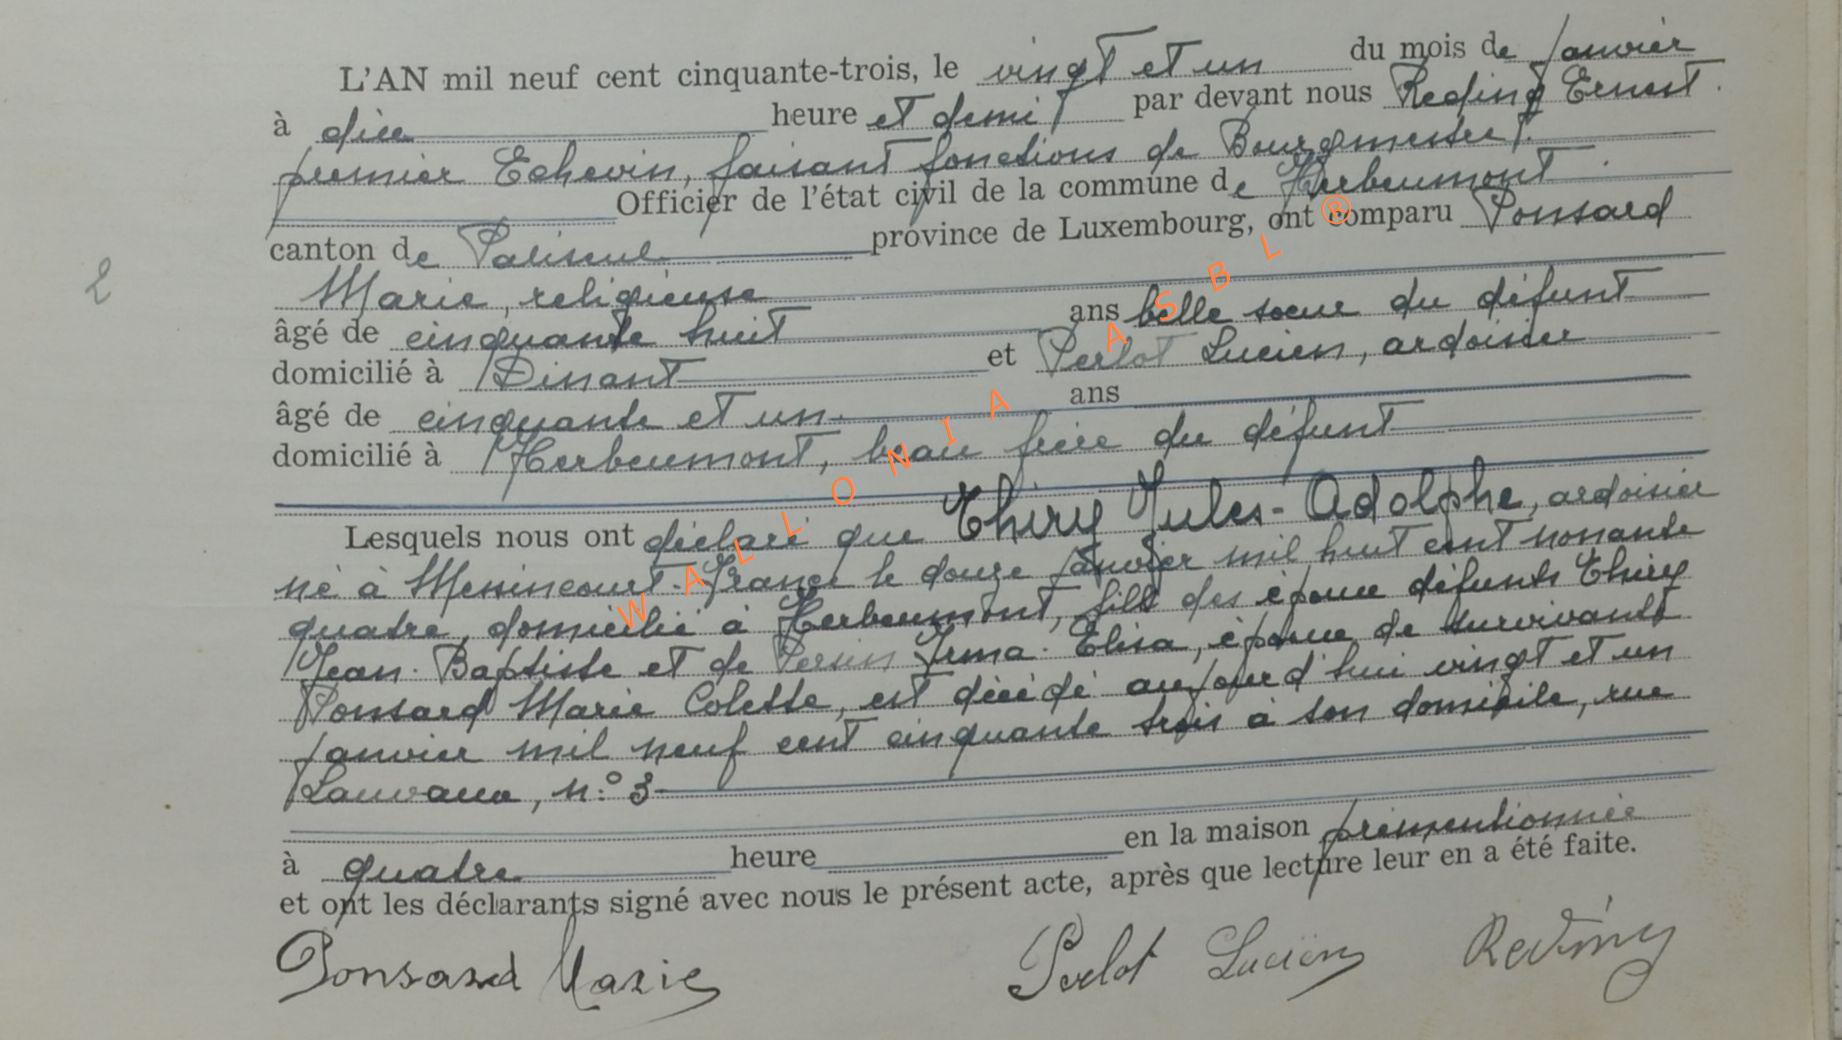 L'AN mil neuf cent cinquante-trois, le vingt et un du mois de janvier
à dix heure et demi par devant nous Reding Ernest
premier Echevin, faisant fonctions de Bourgmestre
Officier de l'état civil de la commune de Herbeumont
canton de Paliseul province de Luxembourg, ont comparu Ponsard
Marie, religieuse
âgé de cinquante huit ans belle soeur du défunt
domicilié à Dinant et Perlot Lucien, ardoisier
âgé de cinquante et un ans
domicilié à Herbeumont, beau frère du défunt
Lesquels nous ont déclaré que Thiry Jules-Adolphe, ardoisier
né à Messincourt-France le douze janvier mil huit cent nonante
quatre, domicilié à Herbeumont, fils des époux défunts Thiry
Jean-Baptiste et de Persin Irma-Elisa, époux de survivante
Ponsard Marie Colette, est décédé aujourd'hui vingt et un
janvier mil neuf cent cinquante trois à son domicile, rue
n:° 3
à quatre heure en la maison prémentionnée
et ont les déclarants signé avec nous le présent acte, après que lecture leur en a été faite.
Ponsard Marie Perlot Lucien Reding
2
WALLONIA ASBL ®